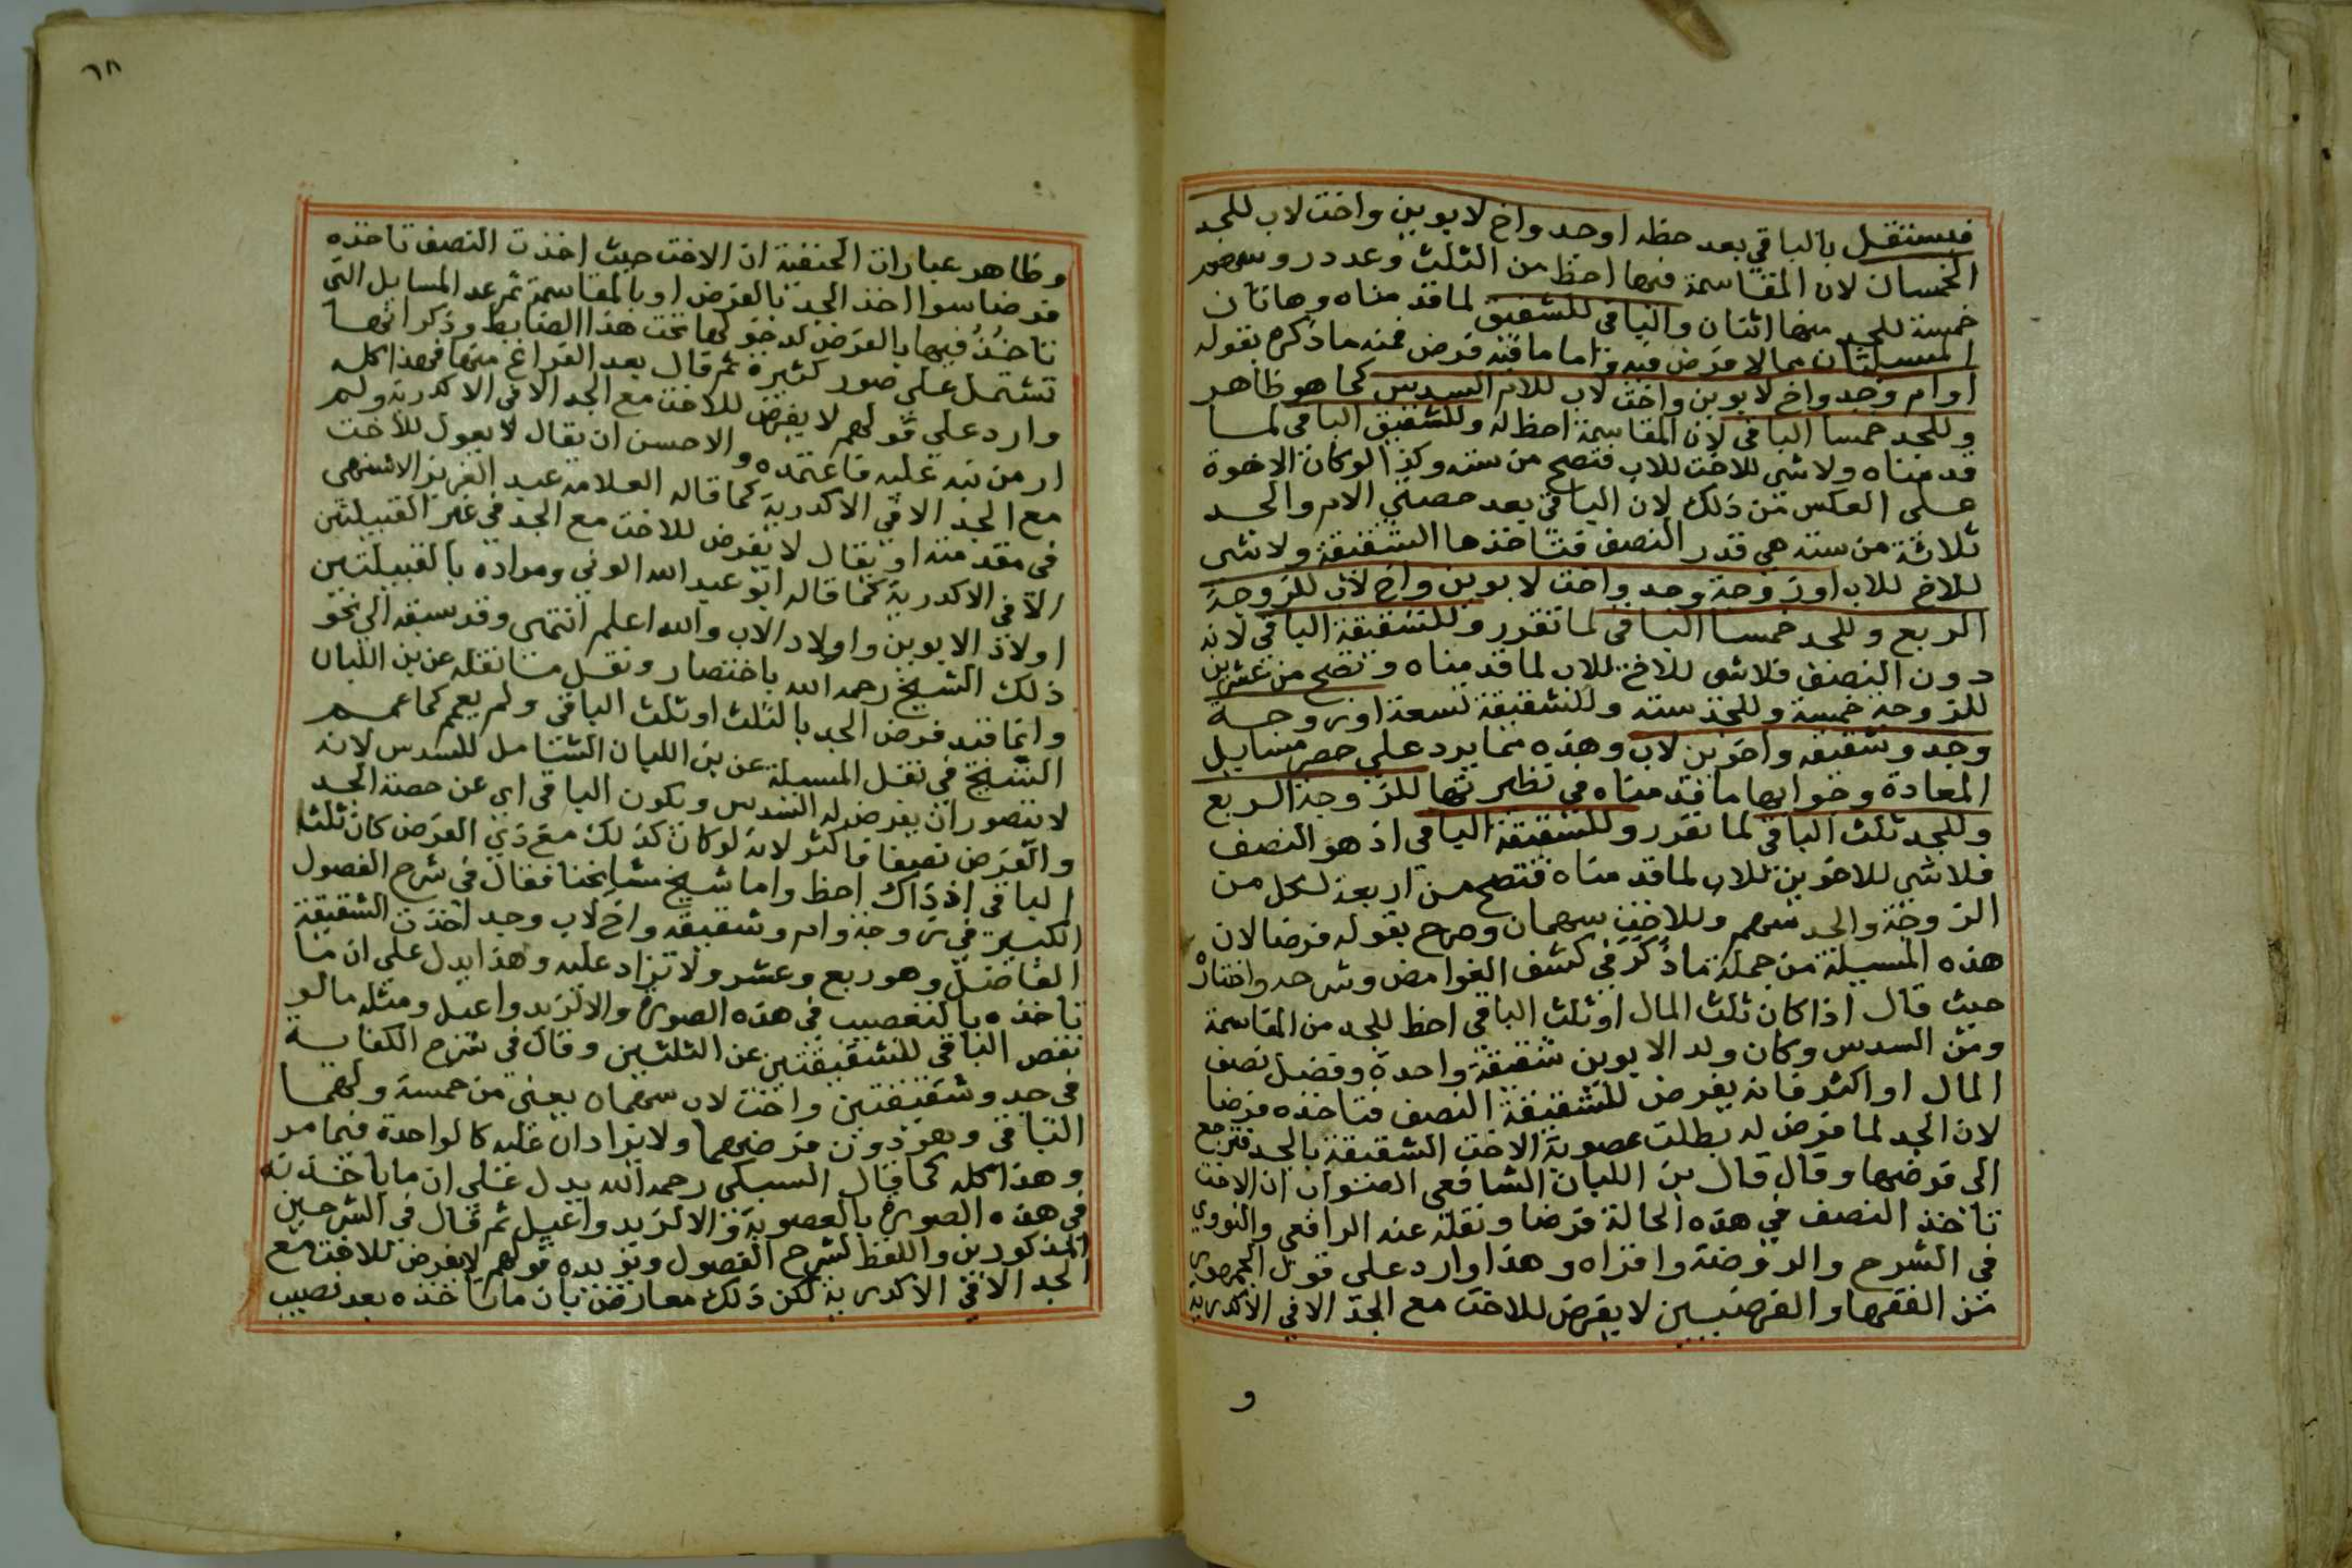 فيستقل بالباقي بعد حظه اوجد واخ لابوين واخت لاب للجد
الخمسان لان المقاسمة فيها احظ من الثلث وعدد روسهم
خمسة للجد منها اثنان والباقي للشقيق لما قدمناه وهاتان
المسيلتان مما لا فرض فيه واما ما فيه فرض فمنه ما ذكره بقوله
اوام وجد واخ لابوين واخت لاب للام السدس كما هو ظاهر
وللجد خمسا الباقي لان المقاسمة احظ له وللشقيق الباقي لما
قدمناه ولا شي للاخت للاب فتصح من سته وكذا لو كان الاخوة
على العكس من ذلك لان الباقي بعد حصتي الام والجد
ثلاثة من سته هي قدر النصف فتاخذها الشقيقة ولا شي
للاخ للاب اوزوجة وجد واخت لابوين واخ لاب للزوجة
الربع وللجد خمسا الباقي لما تقرر وللشقيقة الباقي لانه
دون النصف فلا شي للاخ للاب لما قدمناه وتصح من عشرين
للزوجة خمسة وللجد سته وللشقيقة تسعة اوزوجة
وجد وشقيقه واخوين لاب وهذه مما يرد على حصر مسايل
المعادة وجوابها ما قدمناه في نظيرتها للزوجة الربع
وللجد ثلث الباقي لما تقرر وللشقيقة الباقي اذ هو النصف
فلا شي للاخوين للاب لما قدمناه فتصح من اربعة لكل من
الزوجة والجد سهم وللاخت سهمان وصرح بقوله فرضا لان
هذه المسيلة من جملة ما ذكر في كشف الغوامض وشرحه واختاره
حيث قال اذا كان ثلث المال او ثلث الباقي احظ للجد من المقاسمة
ومن السدس وكان ولد الابوين شقيقة واحدة وفضل نصف
المال او اكثر فانه يفرض للشقيقة النصف فتاخذه فرضا
لان الجد لما فرض له بطلت عصوبة الاخت الشقيقة بالجد فترجع
الى فرضها وقال قال بن اللبان الشافعي الصواب ان الاخت
تاخذ النصف في هذه الحالة فرضا ونقله عنه الرافعي والنووي
في الشرح والروضة واقراه وهذا وارد على قول الجمهور
من الفقها والفرضيين لا يفرض للاخت مع الجد الا في الاكدرية
و
٦٨
وظاهر عبارات الحنفية ان الاخت حيث اخذت النصف تاخذه
فرضا سوا اخذ الجد بالفرض او بالمقاسمة ثم عد المسايل التي
تاخذ فيها بالفرض لدخولها تحت هذا الضابط وذكر انها
تشتمل على صور كثيرة ثم قال بعد الفراغ منها فهذا كله
وارد على قولهم لا يفرض للاخت مع الجد الا في الاكدرية ولم
ار من نبه عليه فاعتمده والاحسن ان يقال لا يعول للاخت
مع الجد الا في الاكدرية كما قاله العلامة عبد العزيز الاشنهي
في مقدمته او يقال لا يفرض للاخت مع الجد في غير القبيلتين
الا في الاكدرية كما قاله ابو عبد الله الوني ومراده بالقبيلتين
اولاد الابوين واولاد الاب والله اعلم انتهى وقد سبقه الى نحو
ذلك الشيخ رحمه الله باختصار ونقل ما نقله عن بن اللبان
وانما قيد فرض الجد بالثلث او ثلث الباقي ولم يعمم كما عمم
الشيخ في نقل المسيلة عن بن اللبان الشامل للسدس لانه
لا يتصور ان يفرض له السدس ويكون الباقي اي عن حصة الجد
والفرض نصفا فاكثر لانه لو كان كذلك مع ذي الفرض كان ثلث
الباقي اذ ذاك احظ واما شيخ مشايخنا فقال في شرح الفصول
الكبير في زوجة وام وشقيقه واخ لاب وجد اخذت الشقيقة
الفاضل وهو ربع وعشر ولا تزاد عليه وهذا يدل على ان ما
تاخذه بالتعصيب في هذه الصورة والا لزيد واعيل ومثله ما لو
نقص الباقي للشقيقتين عن الثلثين وقال في شرح الكفاية
في جد وشقيقتين واخت لاب سهماه يعني من خمسة ولهما
الباقي وهو دون فرضهما ولا يزادان عليه كالواحدة فيما مر
وهذا كله كما قال السبكي رحمه الله يدل على ان ما ياخذنه
في هذه الصورة بالعصوبة والا لزيد واعيل ثم قال في الشرحين
المذكورين واللفظ لشرح الفصول ويويده قولهم لا يفرض للاخت مع
الجد الا في الاكدرية لكن ذلك معارض بان ما تاخذه بعد نصيب